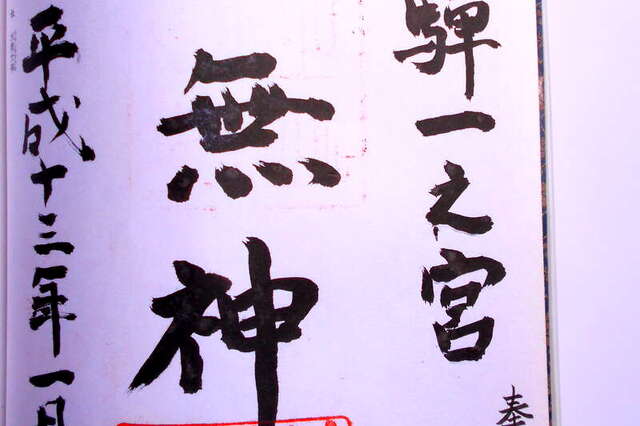 奉
騨一之宮
無神
平成十三年一月